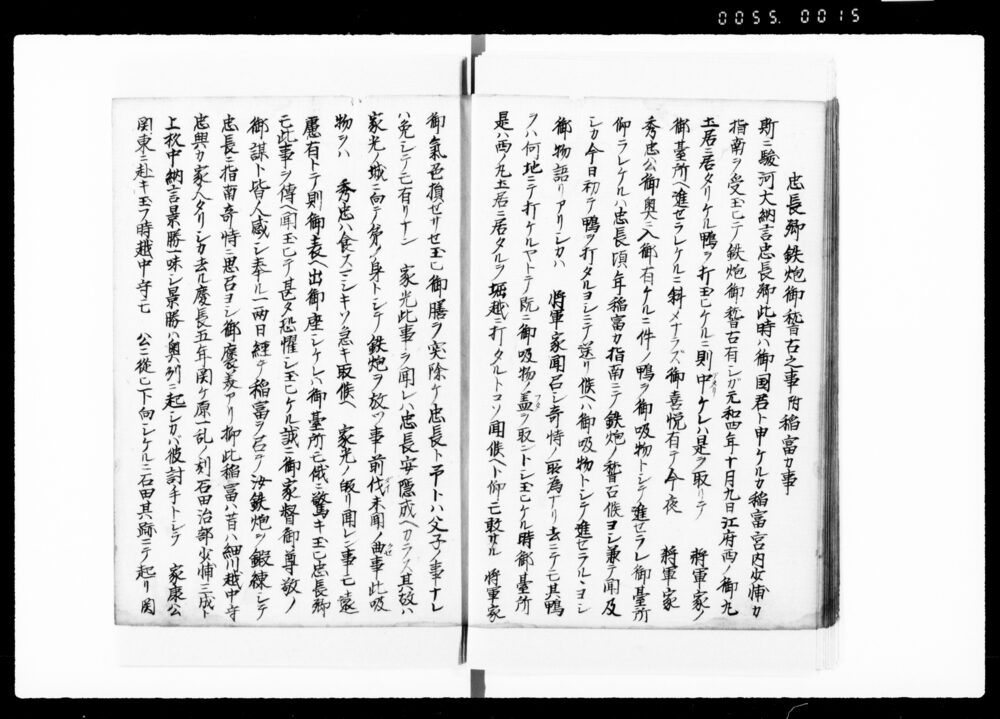 0055.0015
忠長卿鉄炮御稽古之事附稲富カ事
斯ニ駿河大納言忠長卿此時ハ御国君ト申ケルカ稲富宮内少輔カ
指南ヲ受玉ヒテ鉄炮御稽古有シガ元和四年十月九日江府西ノ御丸
土居ニ居タリケル鴨ヲ打玉ヒケルニ則中アタリケレハ是ヲ取リテ 将軍家ノ
御臺所ヘ進ゼラレケルニ斜メナラズ御喜悦有テ今夜 将軍家
秀忠公御奥ニ入御有ケルニ件ノ鴨ヲ御吸物トシテ進ゼラレ御臺所
仰ラレケルハ忠長頃年稲富カ指南ニテ鉄炮ノ稽古候ヨシ兼テ聞及
シカ今日初テ鴨ヲ打タルヨシニテ送リ候ヘハ御吸物トシテ進ゼラルヽヨシ
御物語リアリシカハ 将軍家聞召シ奇特ノ所為ナリ去ニテモ其鴨
ヲハ何地ニテ打ケルヤトテ既ニ御吸物ノ蓋フタヲ取ントシ玉ヒケル時御臺所
是ハ西ノ丸土居ニ居タルヲ堀越ニ打タルトコソ聞候ヘト仰モ敢サル 将軍家
御氣色損ゼサセ玉ヒ御膳ヲ突除ケ忠長ト云トハ父子ノ事ナレ
ハ免シテモ有リナン 家光此事ヲ聞レハ忠長安隠成ヘカラス其故ハ
家光ノ城ニ向テ弟ノ身トシテ鉄炮ヲ放ツ事前代未聞ノ曲事此吸
物ヲハ 秀忠ハ食スマシキソ急キ取候ヘ 家光ノ皈リ聞レン事モ遠
慮有トテ則御表ヘ出御座シケレハ御臺所モ俄ニ驚キ玉ヒ忠長卿
モ此事ヲ傳ヘ聞玉ヒテ甚タ恐懼シ玉ヒケル誠ニ御家督御尊敬ノ
御謀ト皆人感シ奉ル一両日経テ稲富ヲ召テ汝鉄炮ヲ鍛練シテ
忠長ニ指南奇特ニ思召ヨシ御褒美アリ抑此稲富ハ昔ハ細川越中守
忠興カ家人タリシカ去ル慶長五年関ケ原一乱ノ刻石田治部少輔三成ト
上杦中納言景勝一味シ景勝ハ奥州ニ起シカバ彼討手トシテ 家康公
関東ニ赴キ玉フ時越中守モ 公ニ從ヒ下向シケルニ石田其跡ニテ起リ関